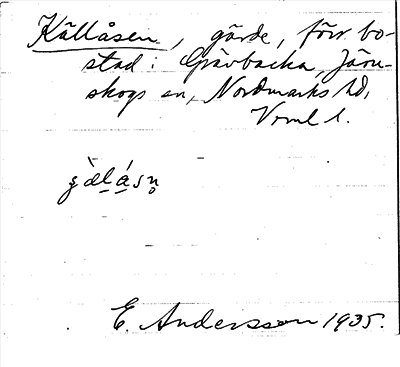 Källåsen, gärde, förr bo-
stad i Grävbacka, Järn-
skogs sn, Nordmarks hd,
Vrml l.
E. Andersson 1935.